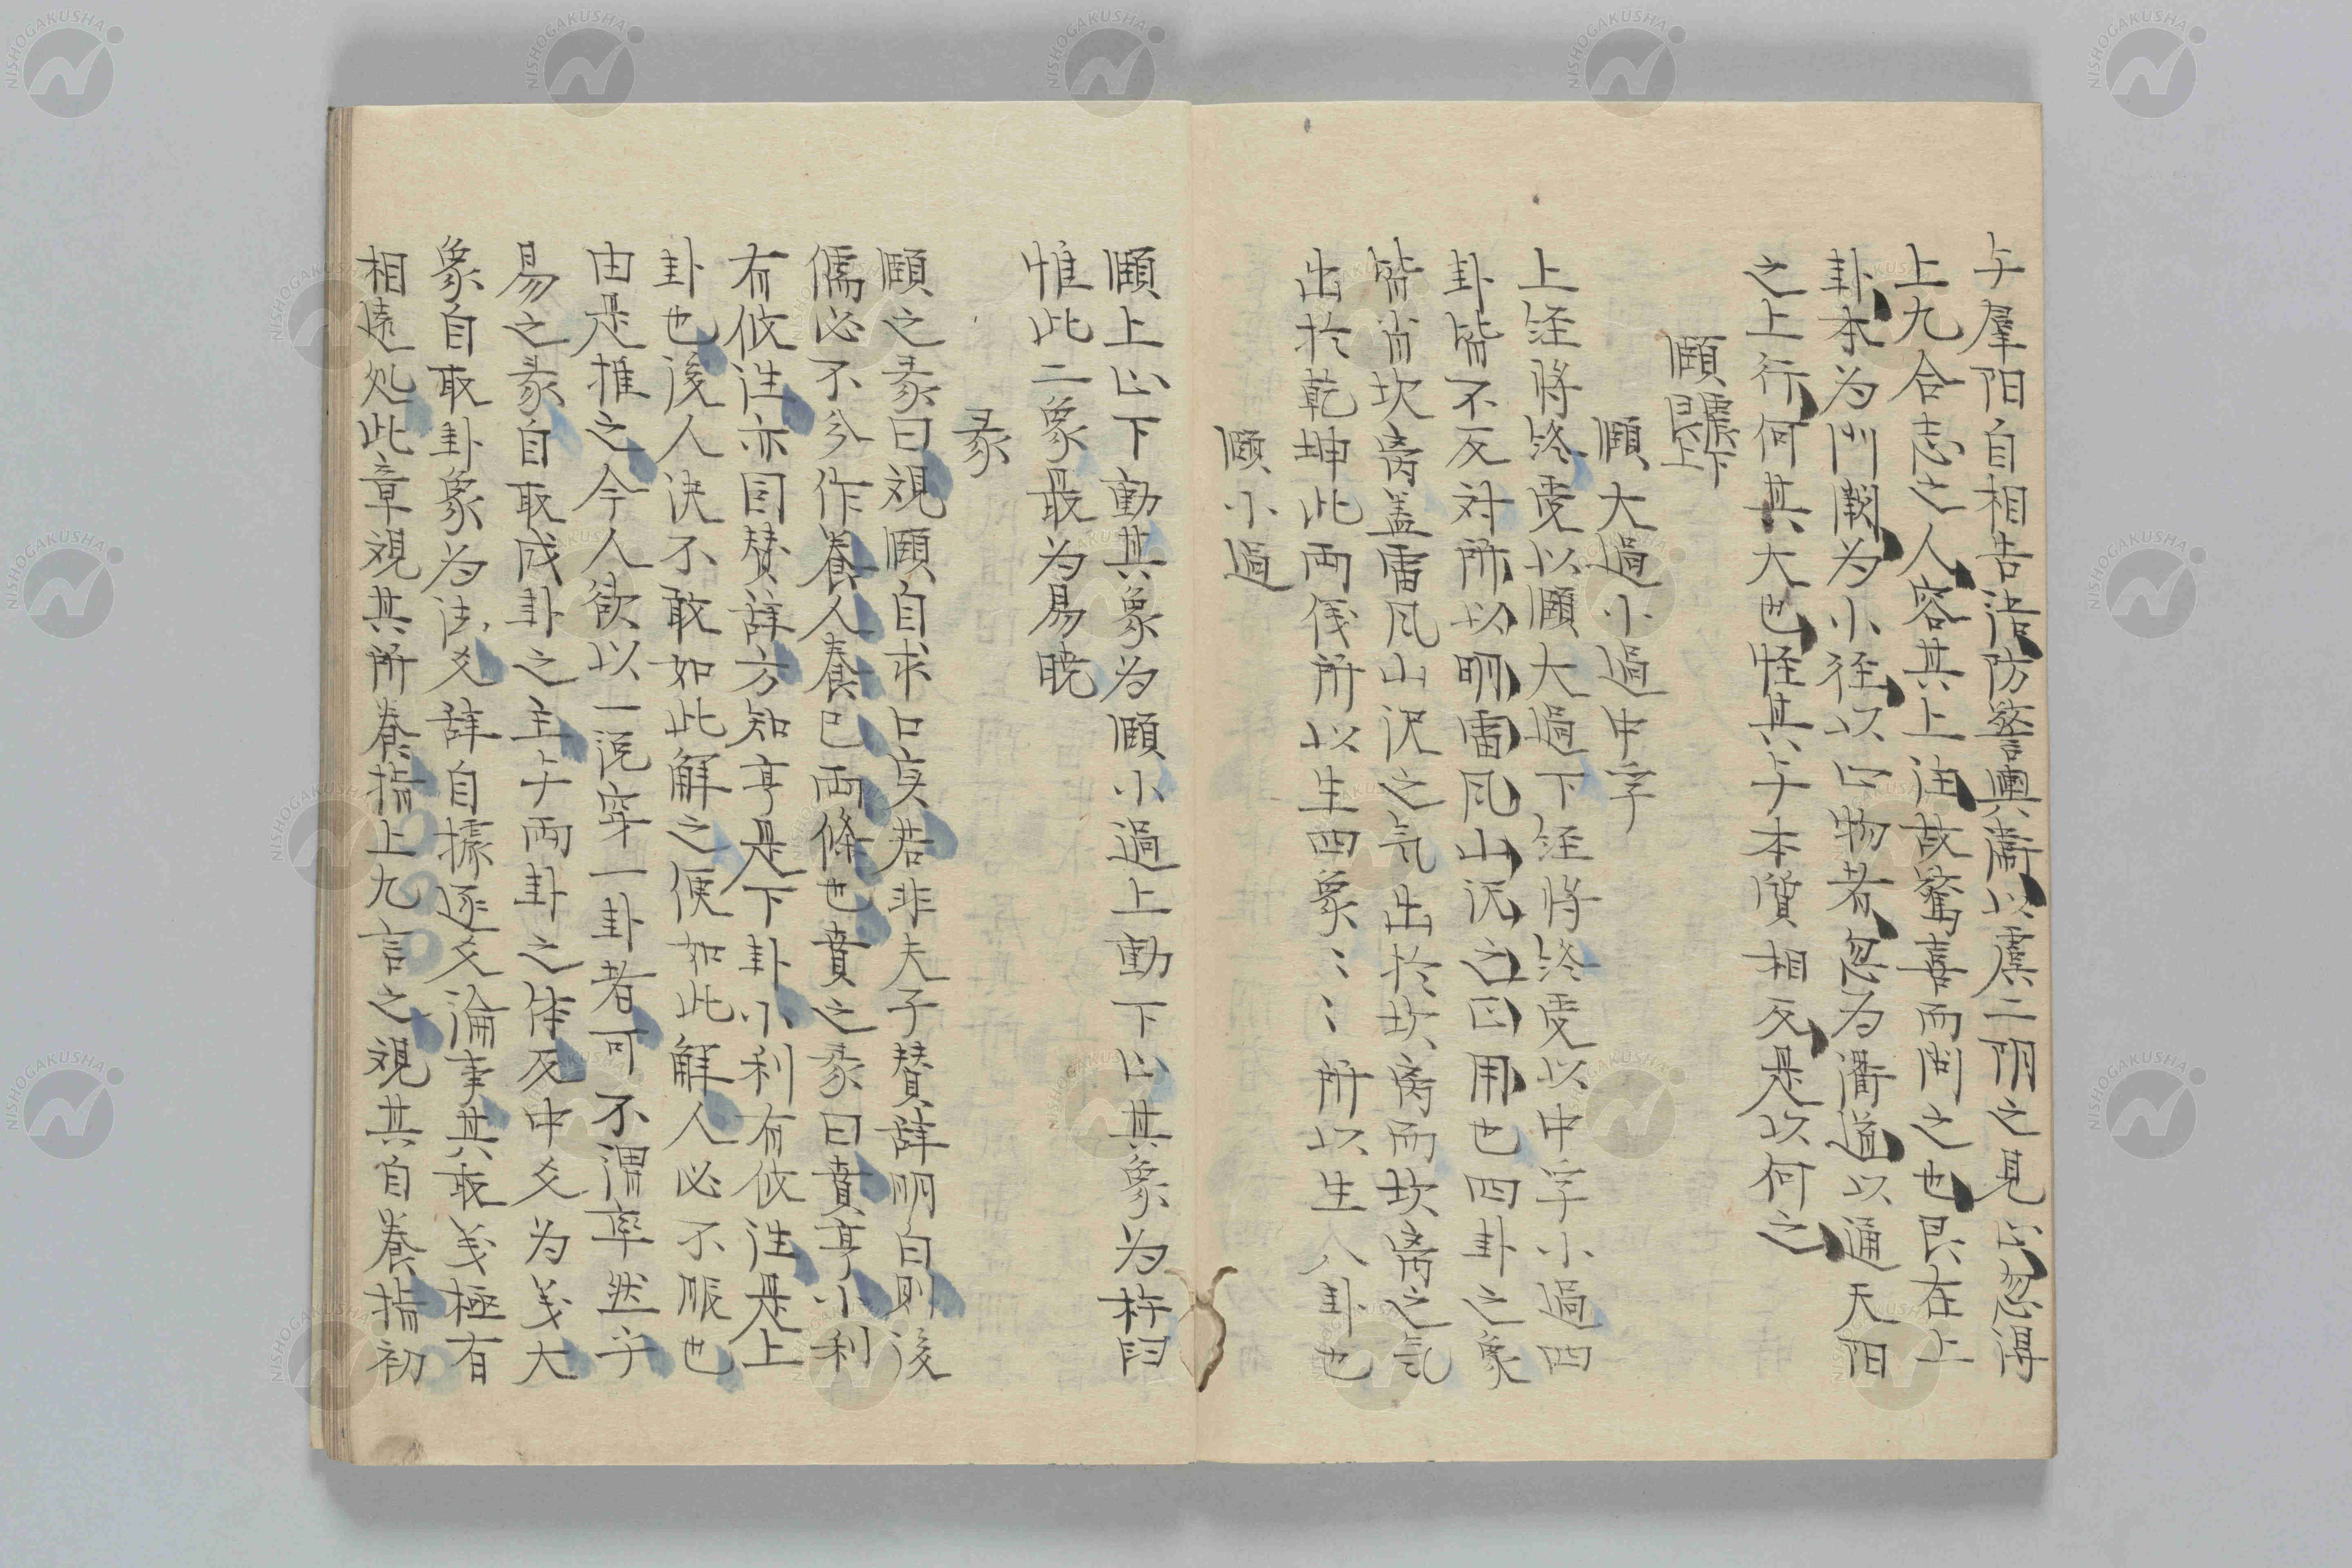 与羣阳自相告语防警輿衛以虞二阴之見止忽得
上九合志之人容其上往故驚喜而问之也艮在上
卦本为门阙为小径以止物者忽为衢道以通天阳
之上行何其大也怪其与本質相反是以何之
頤 震下艮上
頤大過小過中孚
上経将终受以頤大過下経将终受以中孚小過四
卦皆不反对所以明雷风山沢之囗用也四卦之象
皆肖坎离盖雷风山沢之気出於坎离而坎离之気
出於乾坤此両仪所以生四象〻〻所以生八卦也
頤小過
頤上止下動其象为頤小過上動下止其象为杵臼
惟此二象最为易暁
彖
頤之彖曰観頤自求口実若非夫子賛辞明白則後
儒必不分作養人養已両條也賁之彖曰賁亨小利
有攸往亦因賛辞方知亨是下卦小利有攸往是上
卦也後人決不敢如此解之便如此解人必不服也
由是推之今人欲以一説穿一卦者可不謂率然乎
易之彖自取成卦之主与両卦之体反中爻为義大
象自取卦象为法爻辞自據逐爻論事其取義極有
相遠処此章观其所養指上九言之观其自養指初